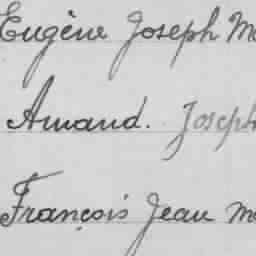 Eugène Joseph M
Amand. Joseph
François Jean M